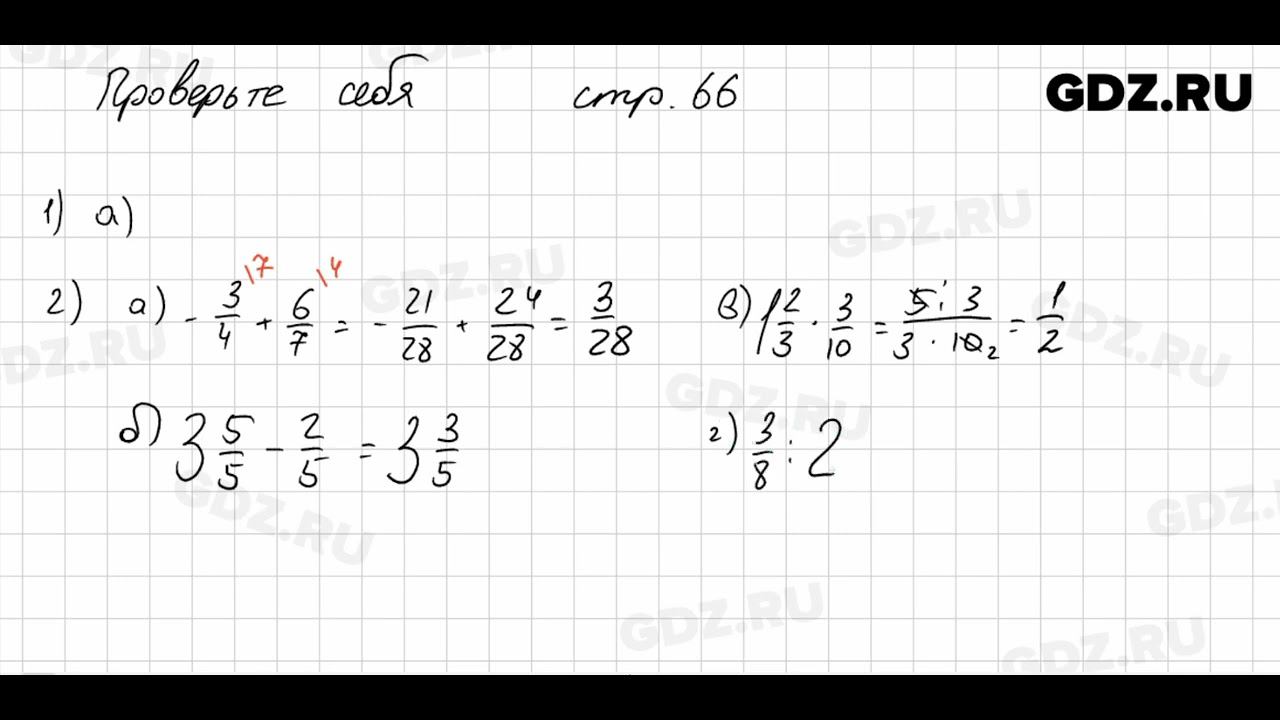 Проверьте себя стр. 66
GDZ.RU
1) а)
2) а) - 3/4 \7 + 6/7 \4 = - 21/28 + 24/28 = 3/28
в) 1 2/3 · 3/10 = 5 · 3 / 3 · 10 2 = 1/2
б) 3 5/5 - 2/5 = 3 3/5
г) 3/8 : 2
GDZ.RU
GDZ.RU
GDZ.RU
GDZ.RU
GDZ.RU
GDZ.RU
GDZ.RU
GDZ.RU
GDZ.RU
GDZ.RU
GDZ.RU